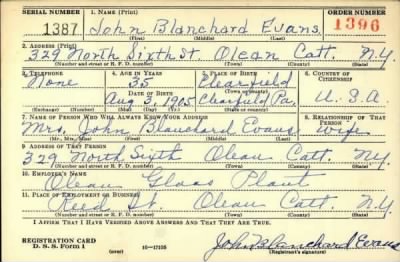 SERIAL NUMBER 1. NAME (Print) ORDER NUMBER
1387 John Blanchard Evans 1396
(First) (Middle) (Last)
2. ADDRESS (Print)
329 North Sixth St. Olean Catt. N.Y.
(Number and street or R. F. D. number) (Town) (County) (State)
3. TELEPHONE 4. AGE IN YEARS 5. PLACE OF BIRTH 6. COUNTRY OF CITIZENSHIP
None 35 Clearfield
DATE OF BIRTH (Town or county)
Aug 3, 1905 Clearfield Pa. U.S.A
(Exchange) (Number) (Mo.) (Day) (Yr.) (State or country)
7. NAME OF PERSON WHO WILL ALWAYS KNOW YOUR ADDRESS 8. RELATIONSHIP OF THAT PERSON
Mrs. John Blanchard Evans Wife
(Mr., Mrs., Miss) (First) (Middle) (Last)
9. ADDRESS OF THAT PERSON
329 North Sixth Olean Catt. N.Y.
(Number and street or R. F. D. number) (Town) (County) (State)
10. EMPLOYER'S NAME
Olean Glass Plant
11. PLACE OF EMPLOYMENT OR BUSINESS
Reed St. Olean Catt. N.Y
(Number and street or R. F. D. number) (Town) (County) (State)
I AFFIRM THAT I HAVE VERIFIED ABOVE ANSWERS AND THAT THEY ARE TRUE.
REGISTRATION CARD
D. S. S. Form 1 (over) 16—17105 John Blanchard Evans
(Registrant's signature)